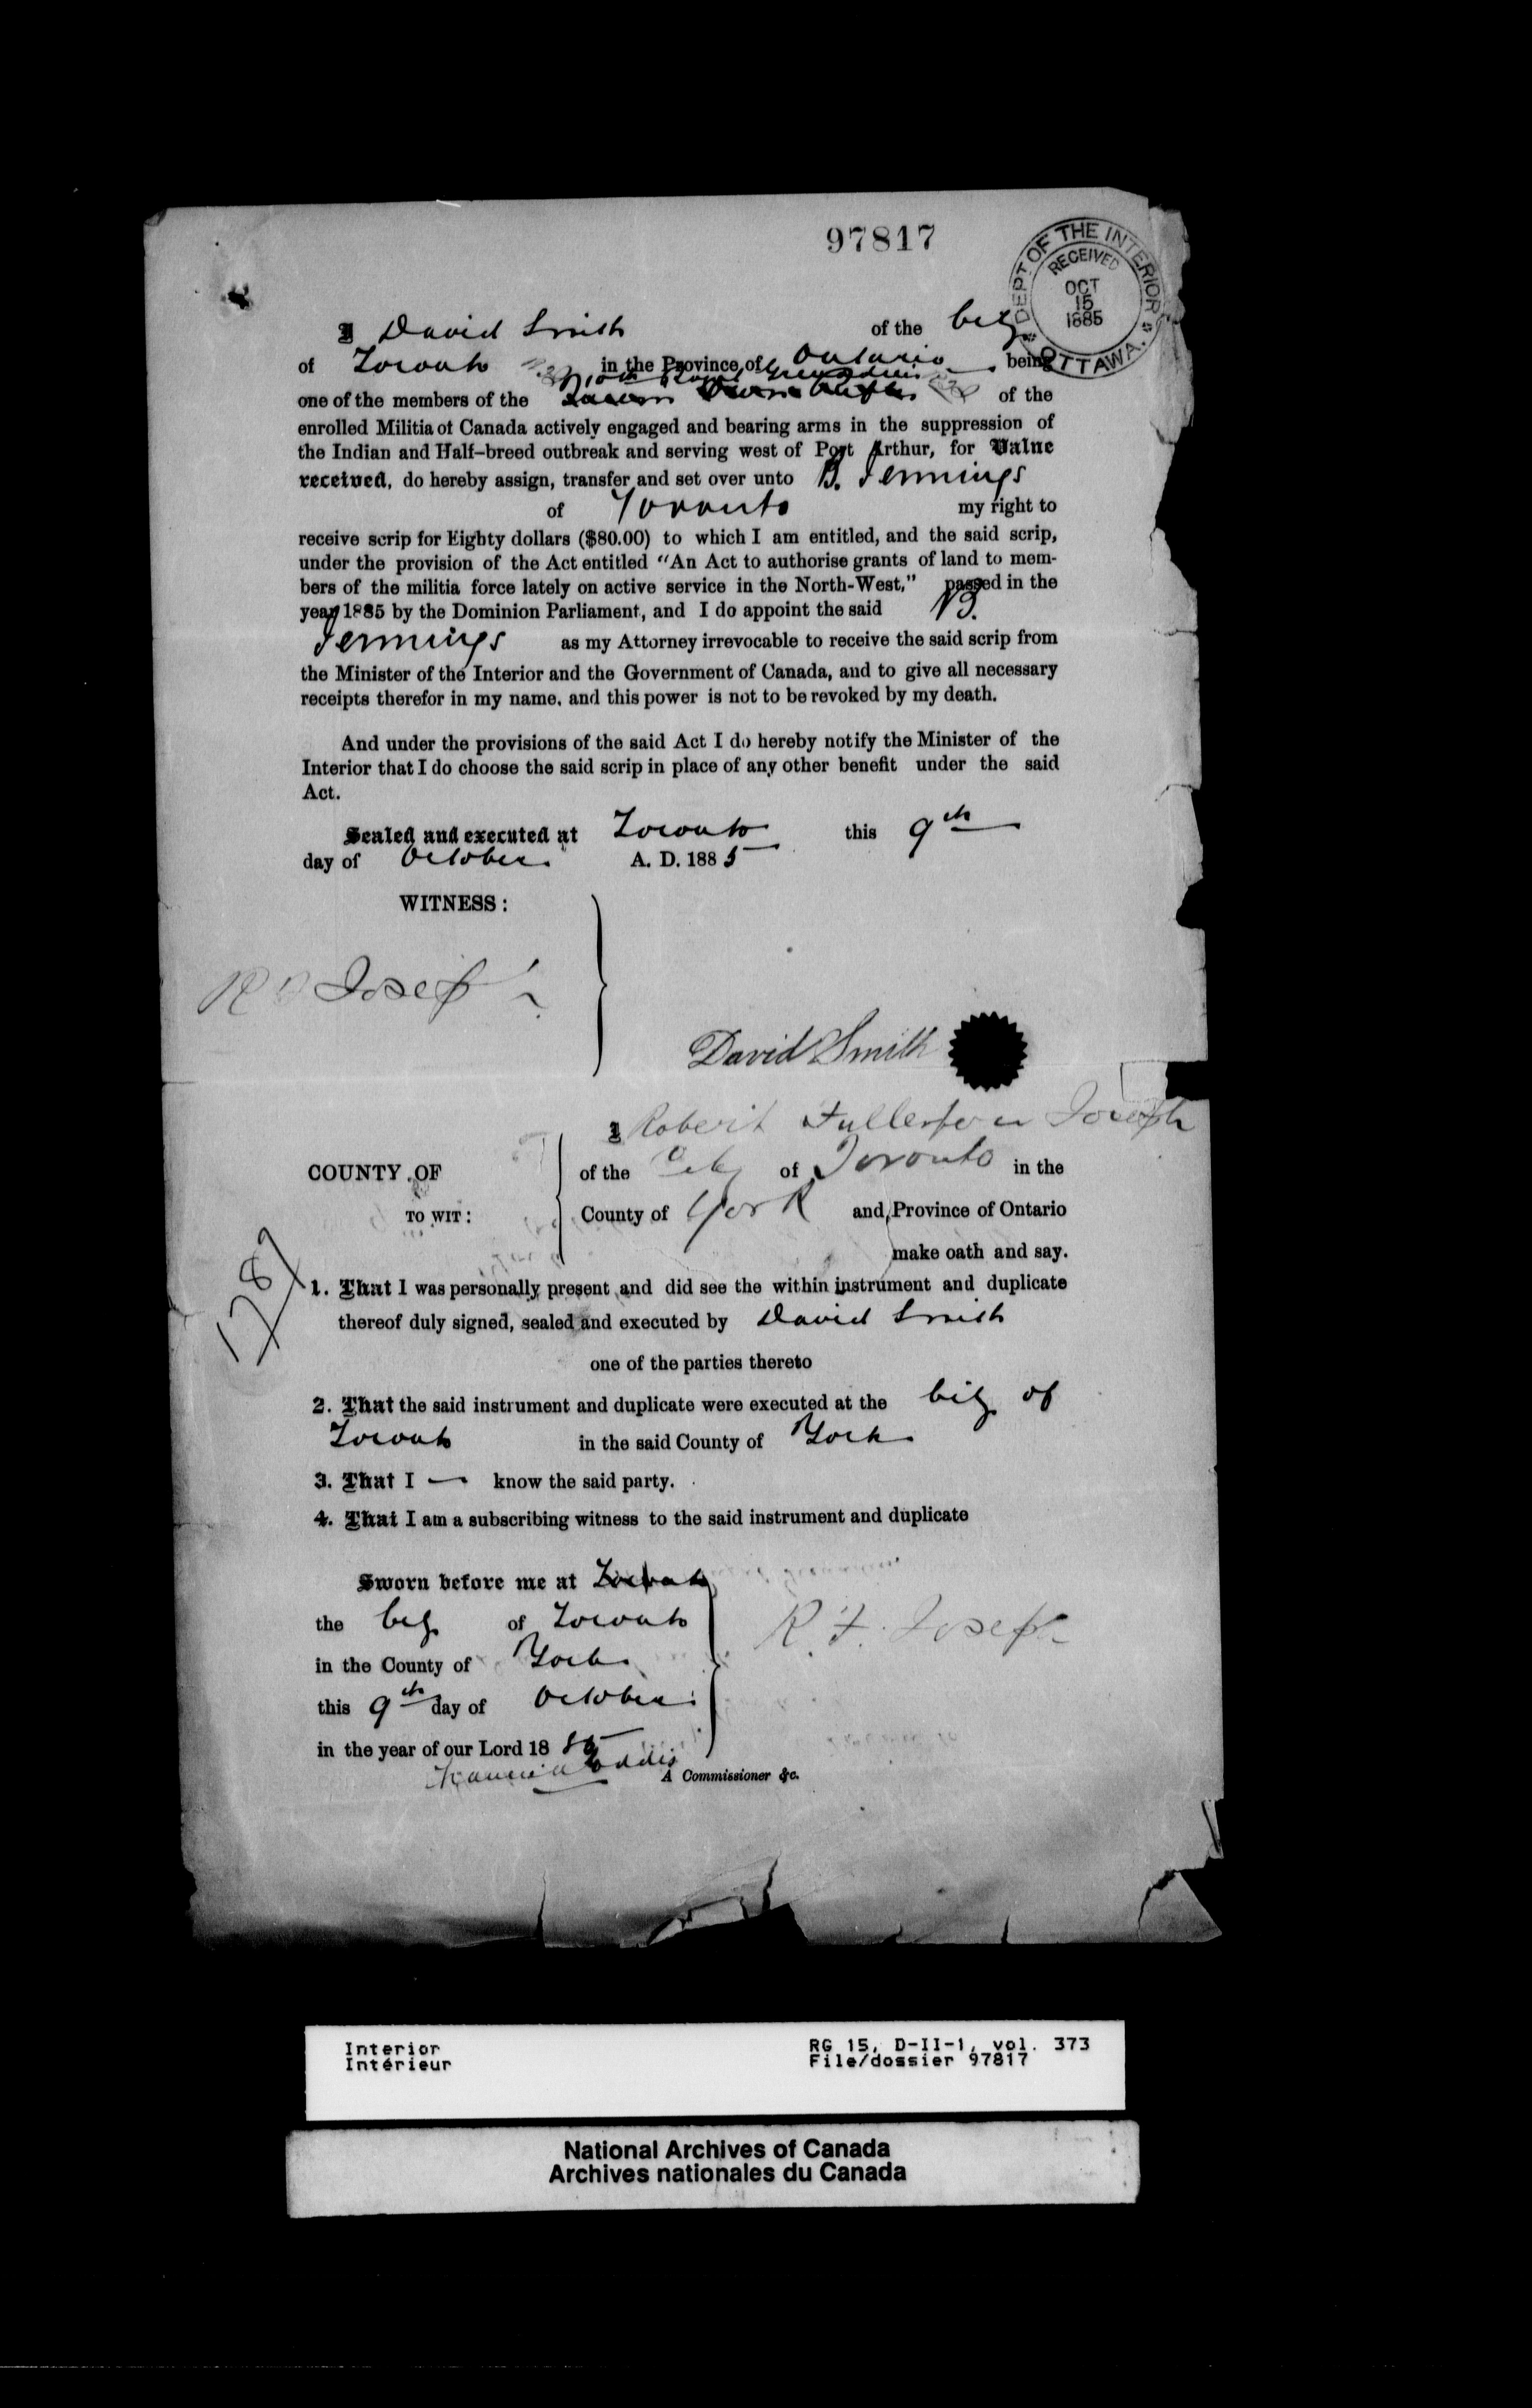 97817
DEPT OF THE INTERIOR
RECEIVED
OCT
15
1885
OTTAWA.
I David Smith of the City
of Toronto in the Province of Ontario being
10th Royal Grenadiers
one of the members of the Queens Own Rifles of the
enrolled Militia of Canada actively engaged and bearing arms in the suppression of
the Indian and Half-breed outbreak and serving west of Port Arthur, for Value
received, do hereby assign, transfer and set over unto B. Jennings
of Toronto my right to
receive scrip for Eighty dollars ($80.00) to which I am entitled, and the said scrip,
under the provision of the Act entitled "An Act to authorise grants of land to mem-
bers of the militia force lately on active service in the North-West," passed in the
year 1885 by the Dominion Parliament, and I do appoint the said B.
Jennings as my Attorney irrevocable to receive the said scrip from
the Minister of the Interior and the Government of Canada, and to give all necessary
receipts therefor in my name, and this power is not to be revoked by my death.
And under the provisions of the said Act I do hereby notify the Minister of the
Interior that I do choose the said scrip in place of any other benefit under the said
Act.
Sealed and executed at Toronto this 9th
day of October A. D. 1885
WITNESS:
R F Joseph
David Smith
I Robert Fullerton Joseph
COUNTY OF of the City of Toronto in the
TO WIT: County of York and Province of Ontario
make oath and say.
1787
1. That I was personally present and did see the within instrument and duplicate
thereof duly signed, sealed and executed by David Smith
one of the parties thereto
2. That the said instrument and duplicate were executed at the City of
Toronto in the said County of York
3. That I — know the said party.
4. That I am a subscribing witness to the said instrument and duplicate
Sworn before me at Toronto
the City of Toronto
R. F. Joseph
in the County of York
this 9th day of October
in the year of our Lord 1885
A Commissioner &c.
Interior RG 15, D-II-1, vol. 373
Intérieur File/dossier 97817
National Archives of Canada
Archives nationales du Canada